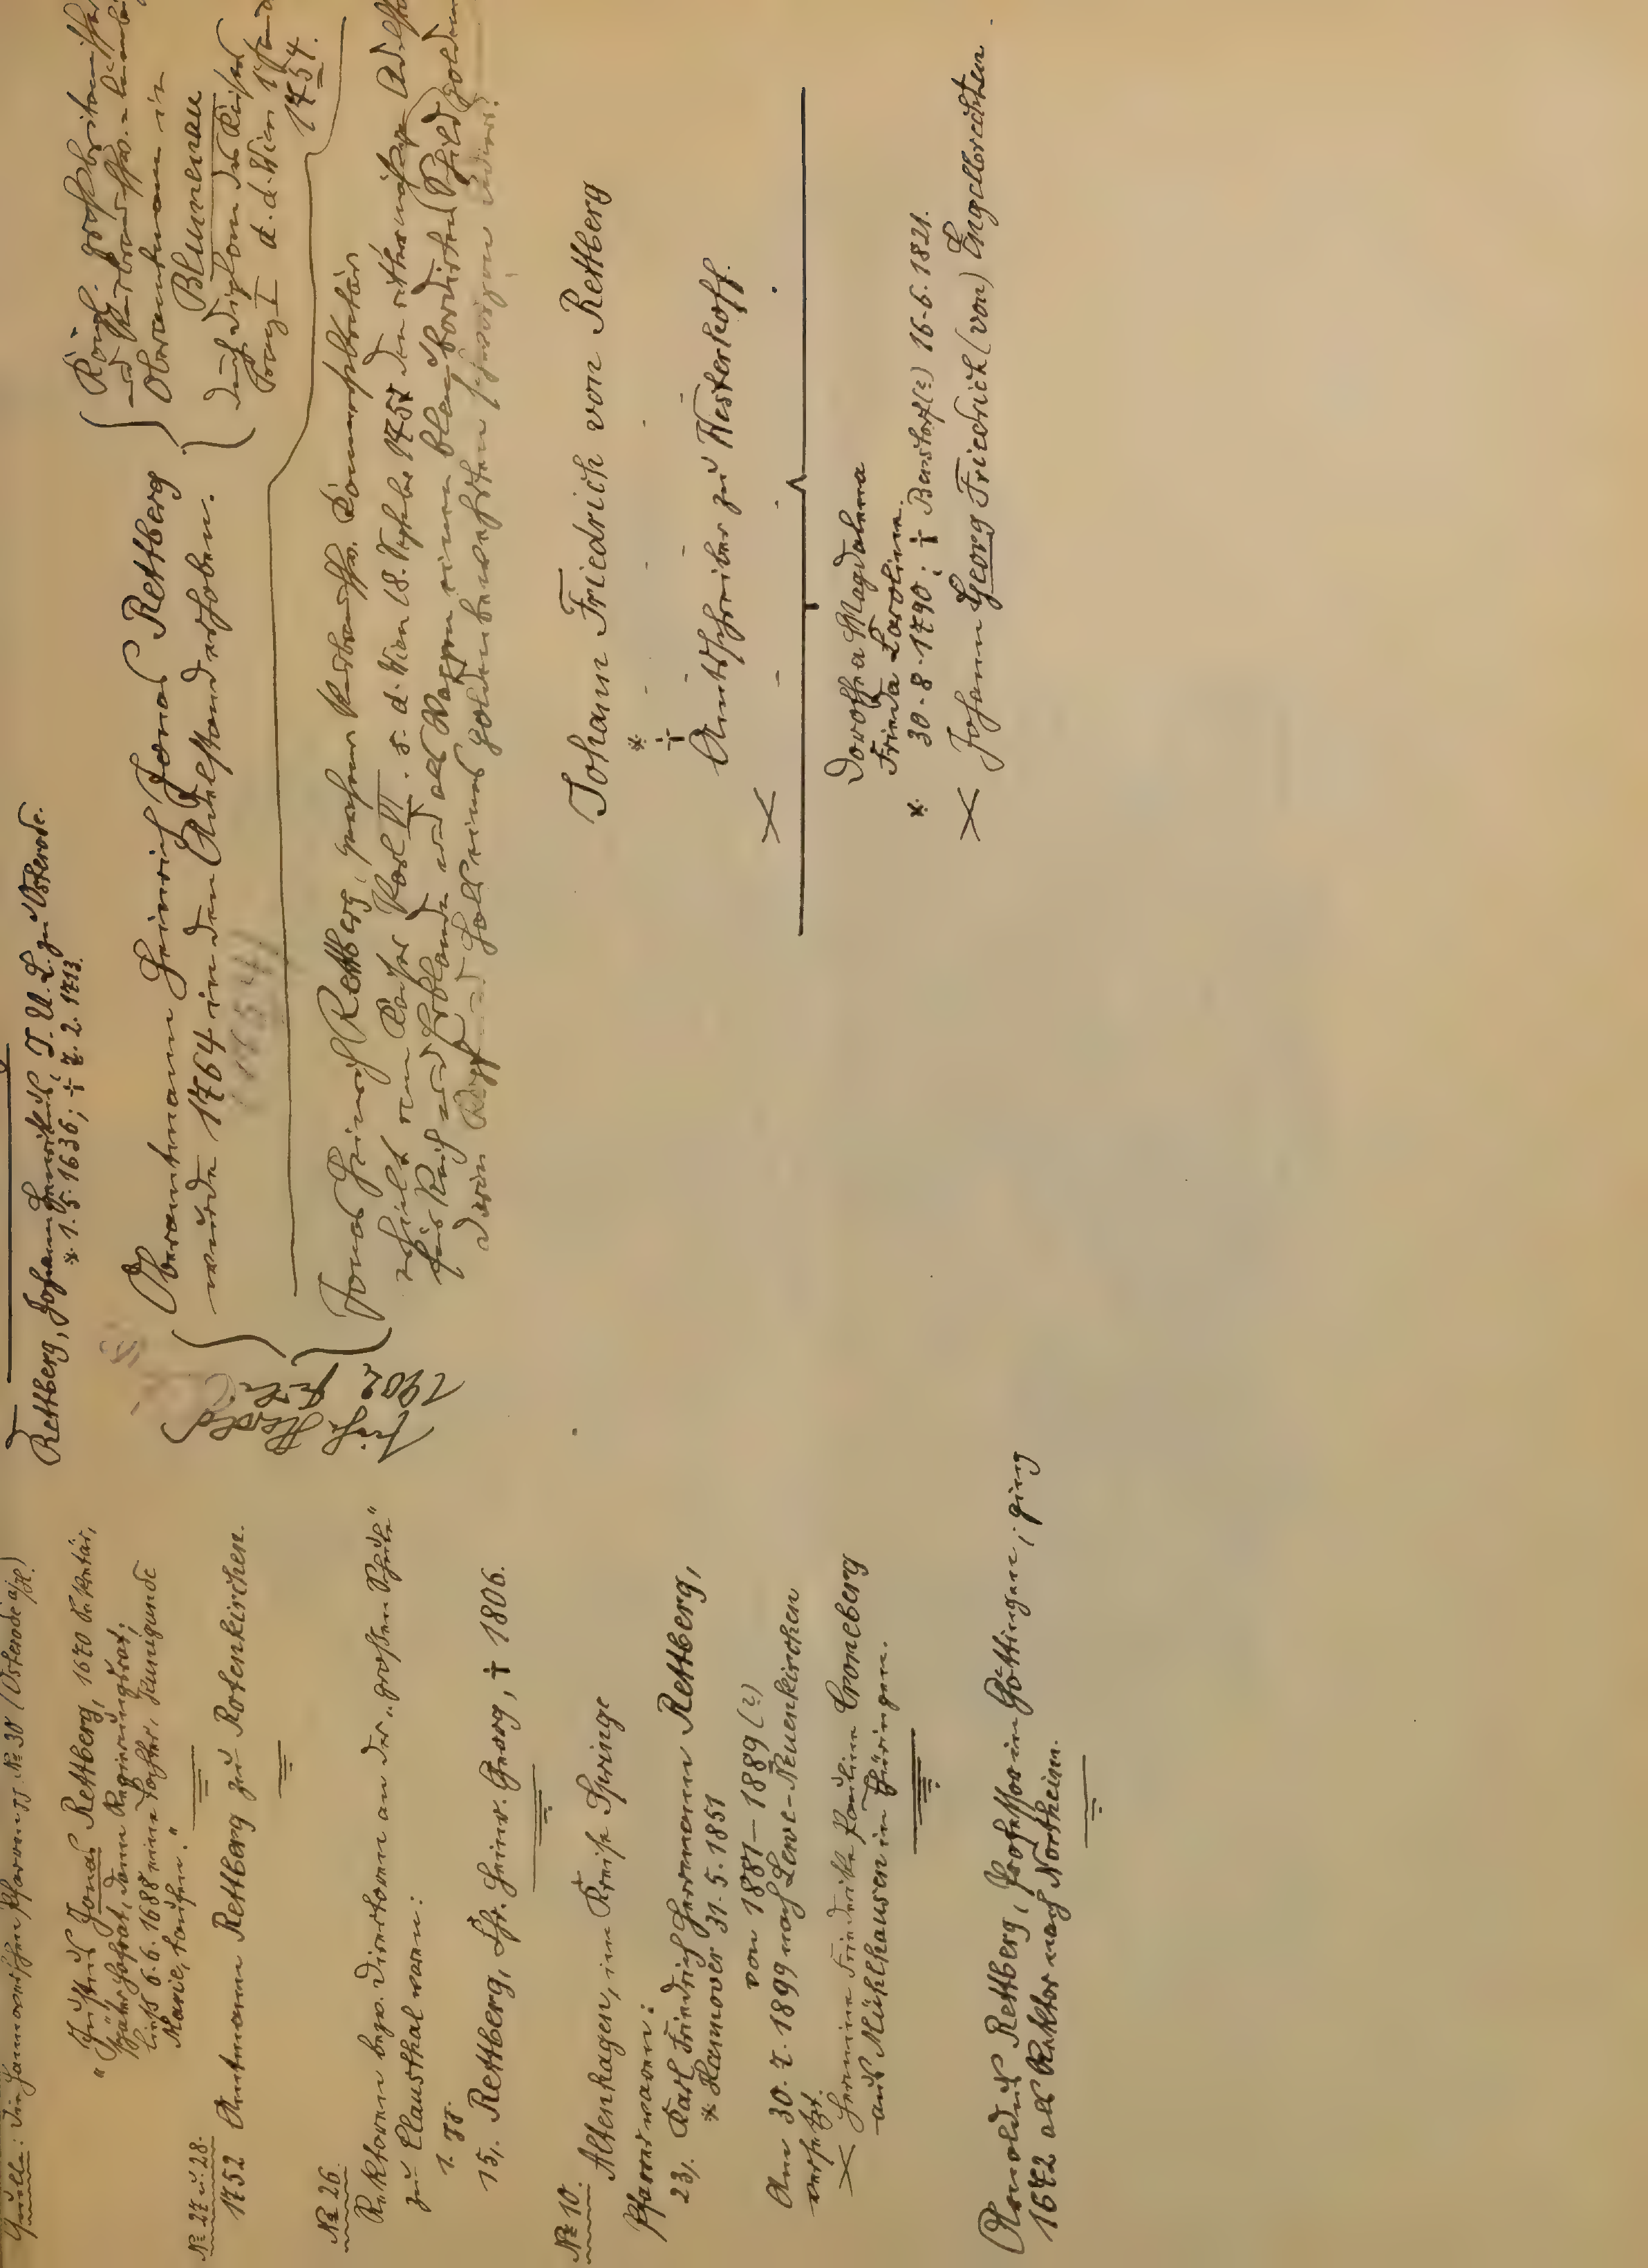 Quelle: Die Hannoverschen Pfarren pp. № 30 (Osterode a/H.)
"Justus Jonas Rettberg, 1670 Sekretär,
später Hofrat, dann Regierungsrat,
liess 6.6.1688 eine Tochter, Kunigunde
Marie, taufen."
№ 27 u. 28.
1752 Amtmann Rettberg zu Rotenkirchen.
№ 26.
Rektoren bezw. Direktoren an der "großen Schule"
zu Clausthal waren:
1. pp.
15). Rettberg, Chr. Heinr. Georg, † 1806.
№ 10.
Altenhagen, im Kreise Springe
Pfarrer waren:
23). Karl Friedrich Hermann Rettberg,
* Hannover 31.5.1851
von 1881–1889 (?)
Am 30.7.1899 nach Lewe-Neuenkirchen
versetzt.
X Hermine Friederike Pauline Croneberg
aus Mühlhausen in Thüringen.
Arnoldus Rettberg, Professor in Göttingen, ging
1672 als Rektor nach Northeim.
Rettberg, Johann Henrikus, J. U. L. zu Osterode.
* 1.5.1636; † 7.2.1713.
Oberamtmann Heinrich Jonas Rettberg
wurde 1764 in den Adelstand erhoben.
(1754)
Königl. großbritannischer
und
Oberamtmann in
Blumenau
durch Diplom des Kaisers
Franz I d. d. Wien
1754.
Herold
1902
Jonas Heinrich Rettberg, Kommerzsekretär
erhielt vom Kaiser Karl VI. d. d. Wien 18. September 1757 den rittermäßigen Adelstand
für Reich und Erblande und als Wappen einen blau bordirten Schild
darin Kopf und Hals eines goldenbewehrten schwarzen Adlers.
Johann Friedrich von Rettberg
*
†
Amtsschreiber zu Westerhoff.
X
Dorothea Magdalena
Frieda Karoline.
* 30.8.1790; † Benstorf (?) 16.6.1821.
X Johann Georg Friedrich (von) Engelbrechten.